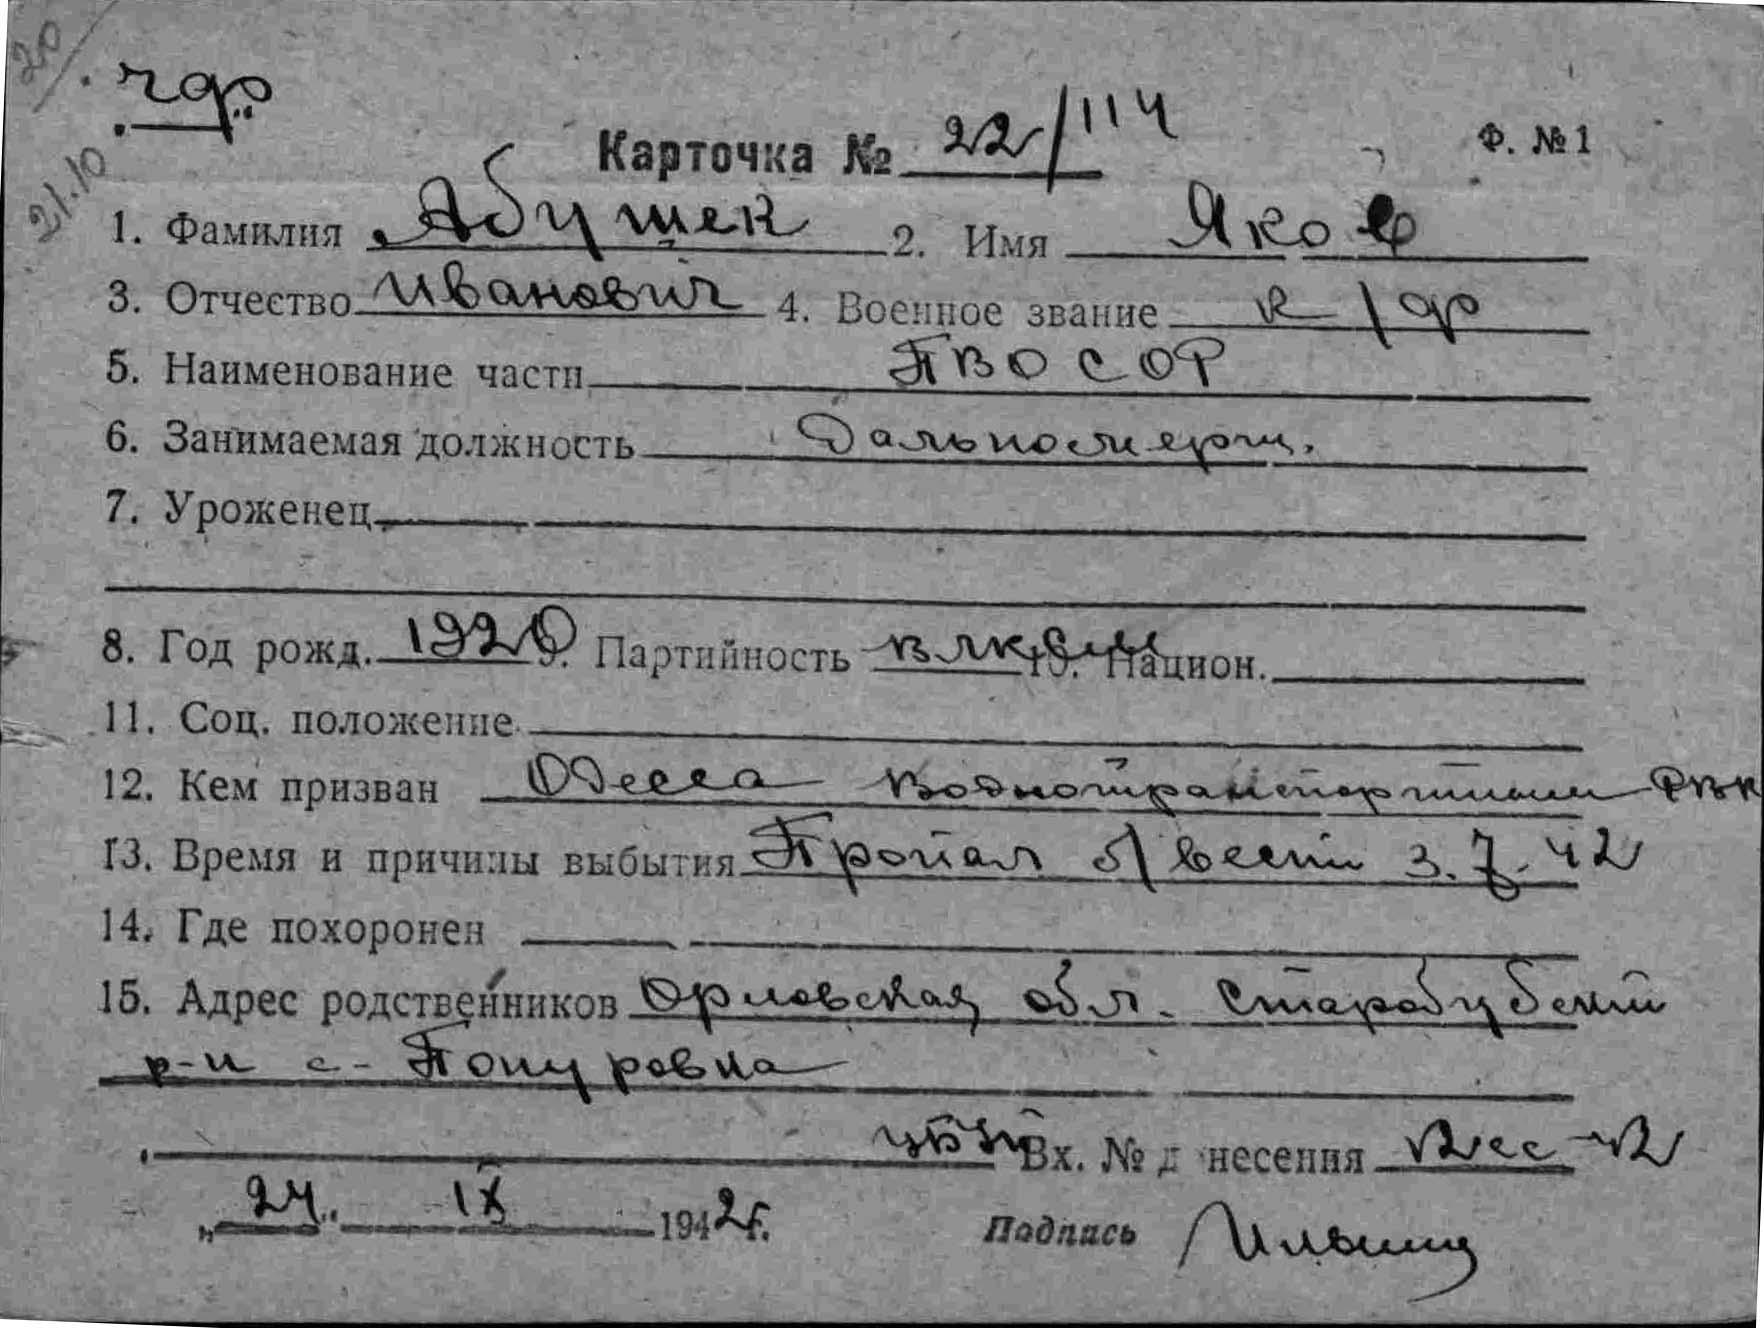 20/
чф
21.10
Карточка № 22/114 Ф. № 1
1. Фамилия Абушек 2. Имя Яков
3. Отчество Иванович 4. Военное звание к/ф
5. Наименование части ПВО СОР
6. Занимаемая должность Дальномерщ.
7. Уроженец
8. Год рожд. 1920 9. Партийность ВЛКСМ 10. Национ.
11. Соц. положение
12. Кем призван Одесса Воднотранспортным РВК
13. Время и причины выбытия Пропал б/вести 3.7.42
14. Где похоронен
15. Адрес родственников Орловская обл. Стародубский
р-н с- Понуровка
Вх. № донесения
„24" IX 1942г. Подпись Ильин